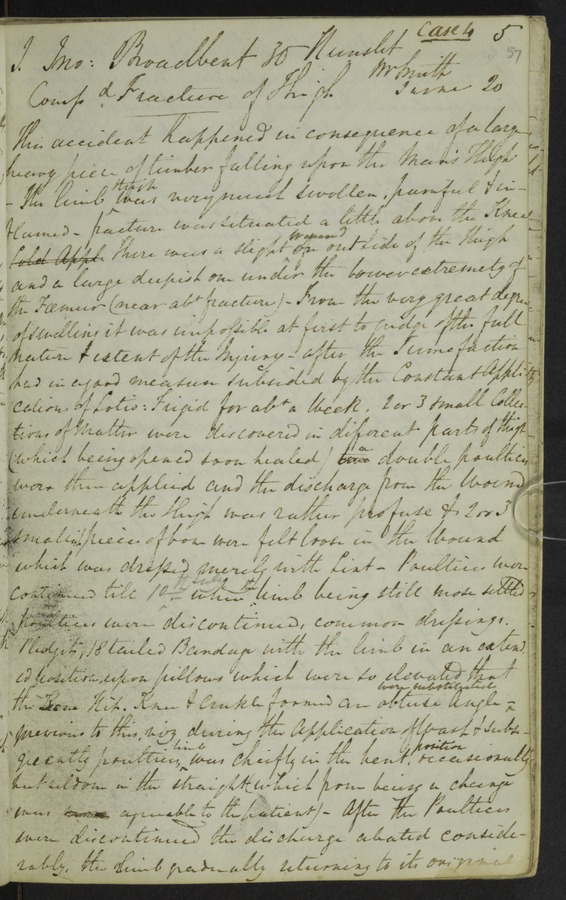 Case 4 5
37
J. Jno: Broadbent 30 Hunslet
Mr Smith
Comp d. Fracture of Thigh June 20
This accident happened in consequence of a large
heavy piece of timber falling upon the Man's Thigh
- The limb thigh was very much swollen, painful & in-
flamed - fracture was situated a little above the Knee
Cold Appl There was a slight wound on outside of the Thigh
and a large deepish one under the lower extremety of
the Fæmur (near abt fracture) - From the very great degree
of swelling it was impossible at first to judge of the full
nature & extent of the Injury - after the Tumefaction
had in a good measure subsided by the Constant Appli-
cations of Lotio: Frigid for abt a Week. 2 or 3 small Collec-
tions of Matter were discovered in different parts of thigh
(which being opened soon healed) a double poultices
were then applied and the discharge from the Wound
underneath the Thigh was rather profuse & 2 or 3
small pieces of bone were felt loose in the Wound
which was dressed merely with Lint - Poultices were
continued till 10th July when the limb being still more settled
poultices were discontinued, common dressings.
Pledgits, 18 tailed Bandage with the limb in an extend
ed position upon pillows which were so elevated that
were substituted
the Hip. Knee & ankle formed an obtuse Angle -
previous to this, viz during the application of wash & subse-
quently poultices, limb was chiefly in the bent position, occasionally
but seldom in the straight (which from being a change
was agreeable to the patient) - After the Poultices
were discontinued the discharge abated conside-
rably. the limb gradually returning to its original